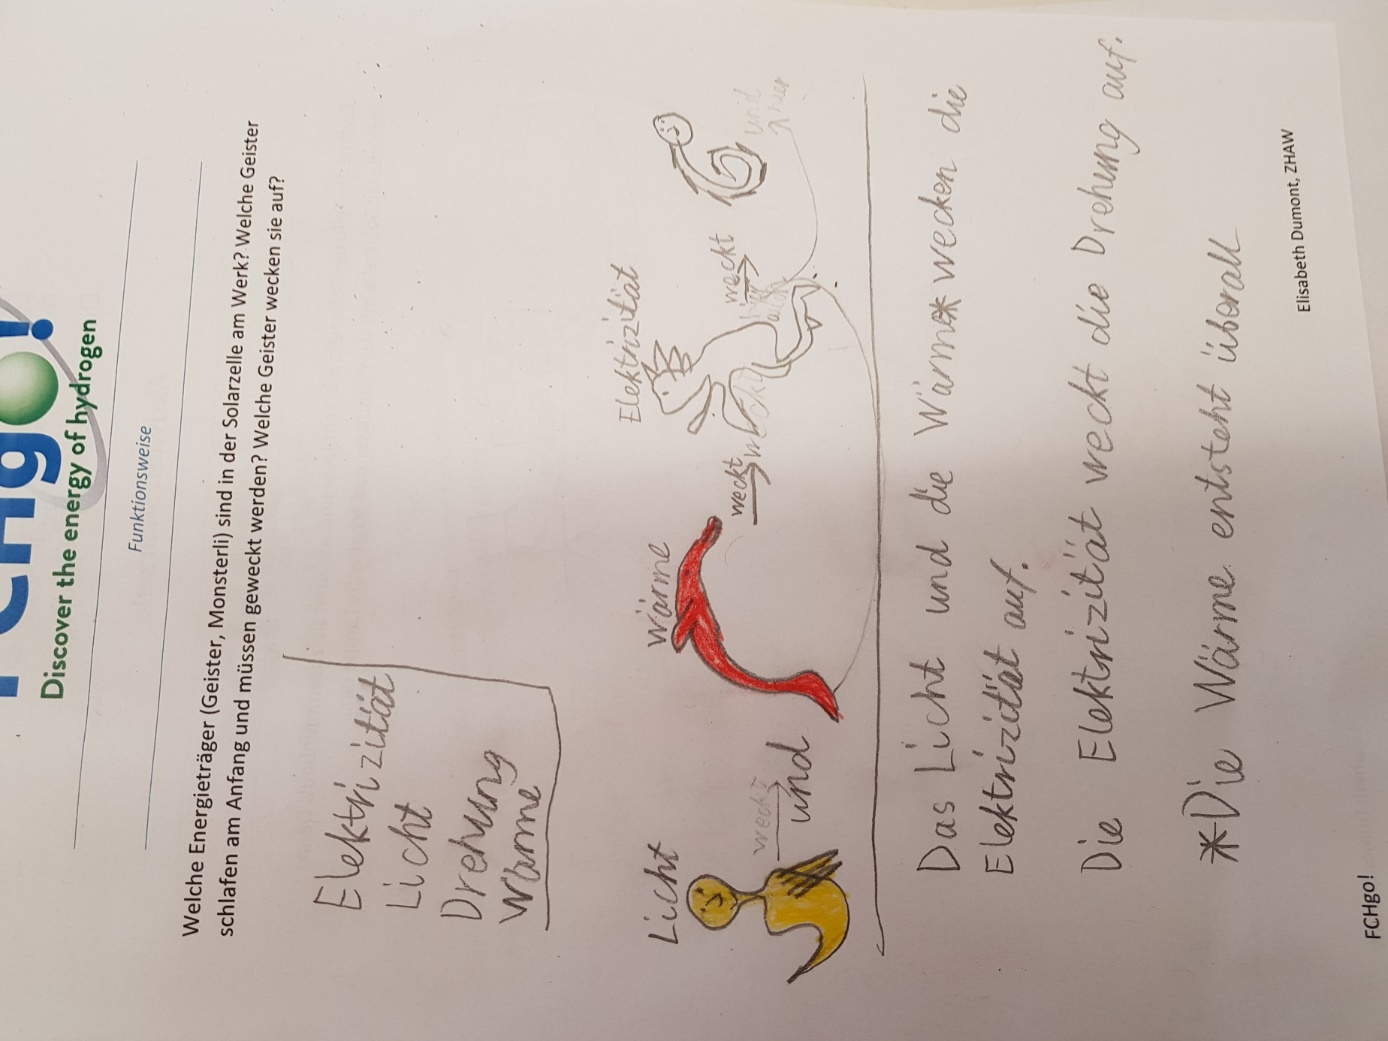 FCHgo!
Discover the energy of hydrogen
Funktionsweise
Welche Energieträger (Geister, Monsterli) sind in der Solarzelle am Werk? Welche Geister
schlafen am Anfang und müssen geweckt werden? Welche Geister wecken sie auf?
Elektrizität
Licht
Drehung
Wärme
Licht
weckt
und
Wärme
weckt
weckt
Elektrizität
weckt
und
hier
Das Licht und die Wärme* wecken die
Elektrizität auf.
Die Elektrizität weckt die Drehung auf.
*Die Wärme entsteht überall
Elisabeth Dumont, ZHAW
FCHgo!